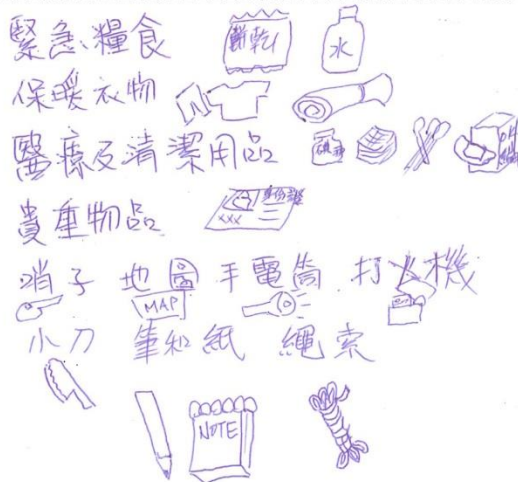 緊急糧食 餅乾 水
保暖衣物
醫療及清潔用品
貴重物品 身份證
XXX
哨子 地圖 手電筒 打火機
MAP
小刀 筆和紙 繩索
NOTE